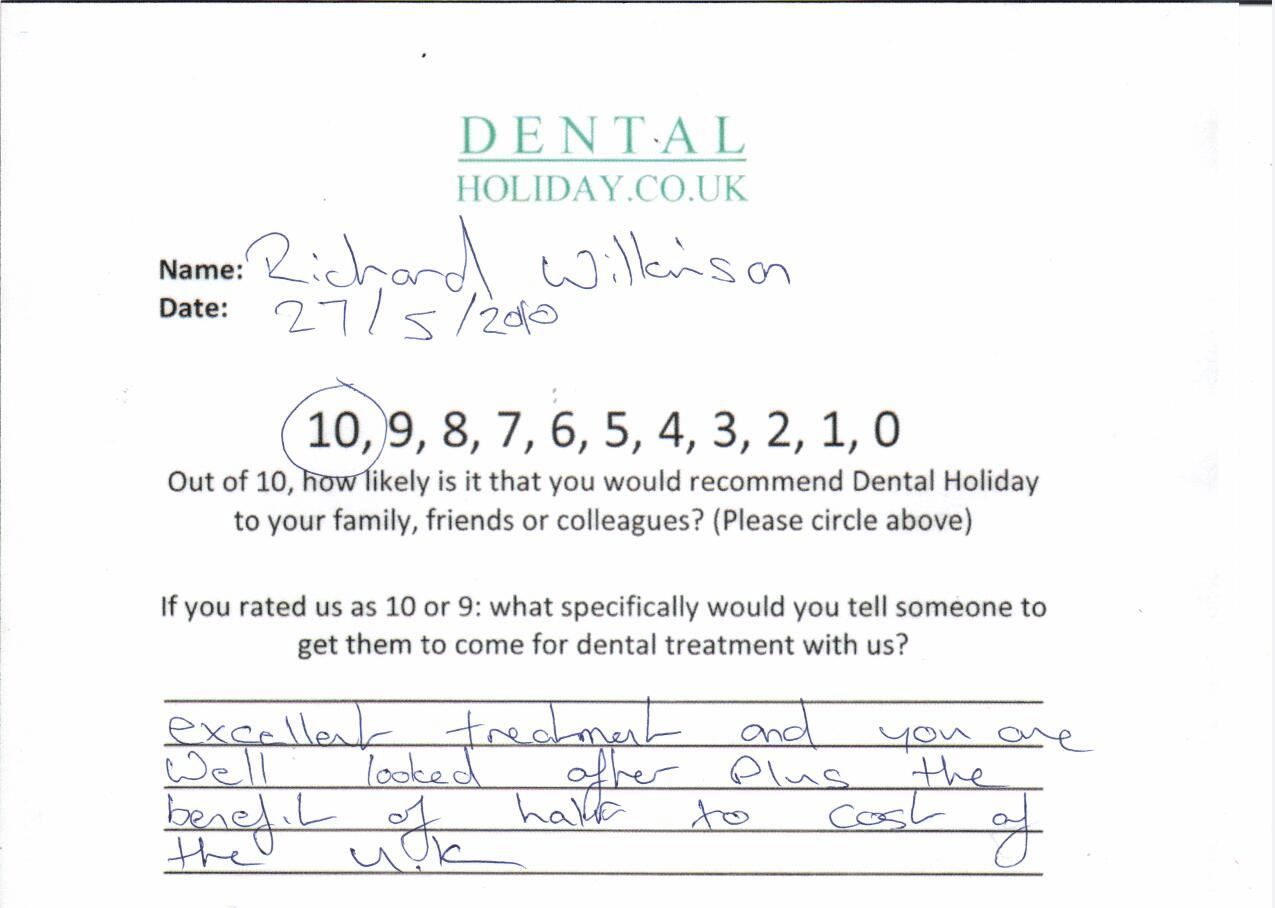 DENTAL
HOLIDAY.CO.UK
Name: Richard Wilkinson
Date: 27/5/2010
10, 9, 8, 7, 6, 5, 4, 3, 2, 1, 0
Out of 10, how likely is it that you would recommend Dental Holiday
to your family, friends or colleagues? (Please circle above)
If you rated us as 10 or 9: what specifically would you tell someone to
get them to come for dental treatment with us?
excellent treatment and you are
Well looked after Plus the
benefit of half to cost of
the U.K